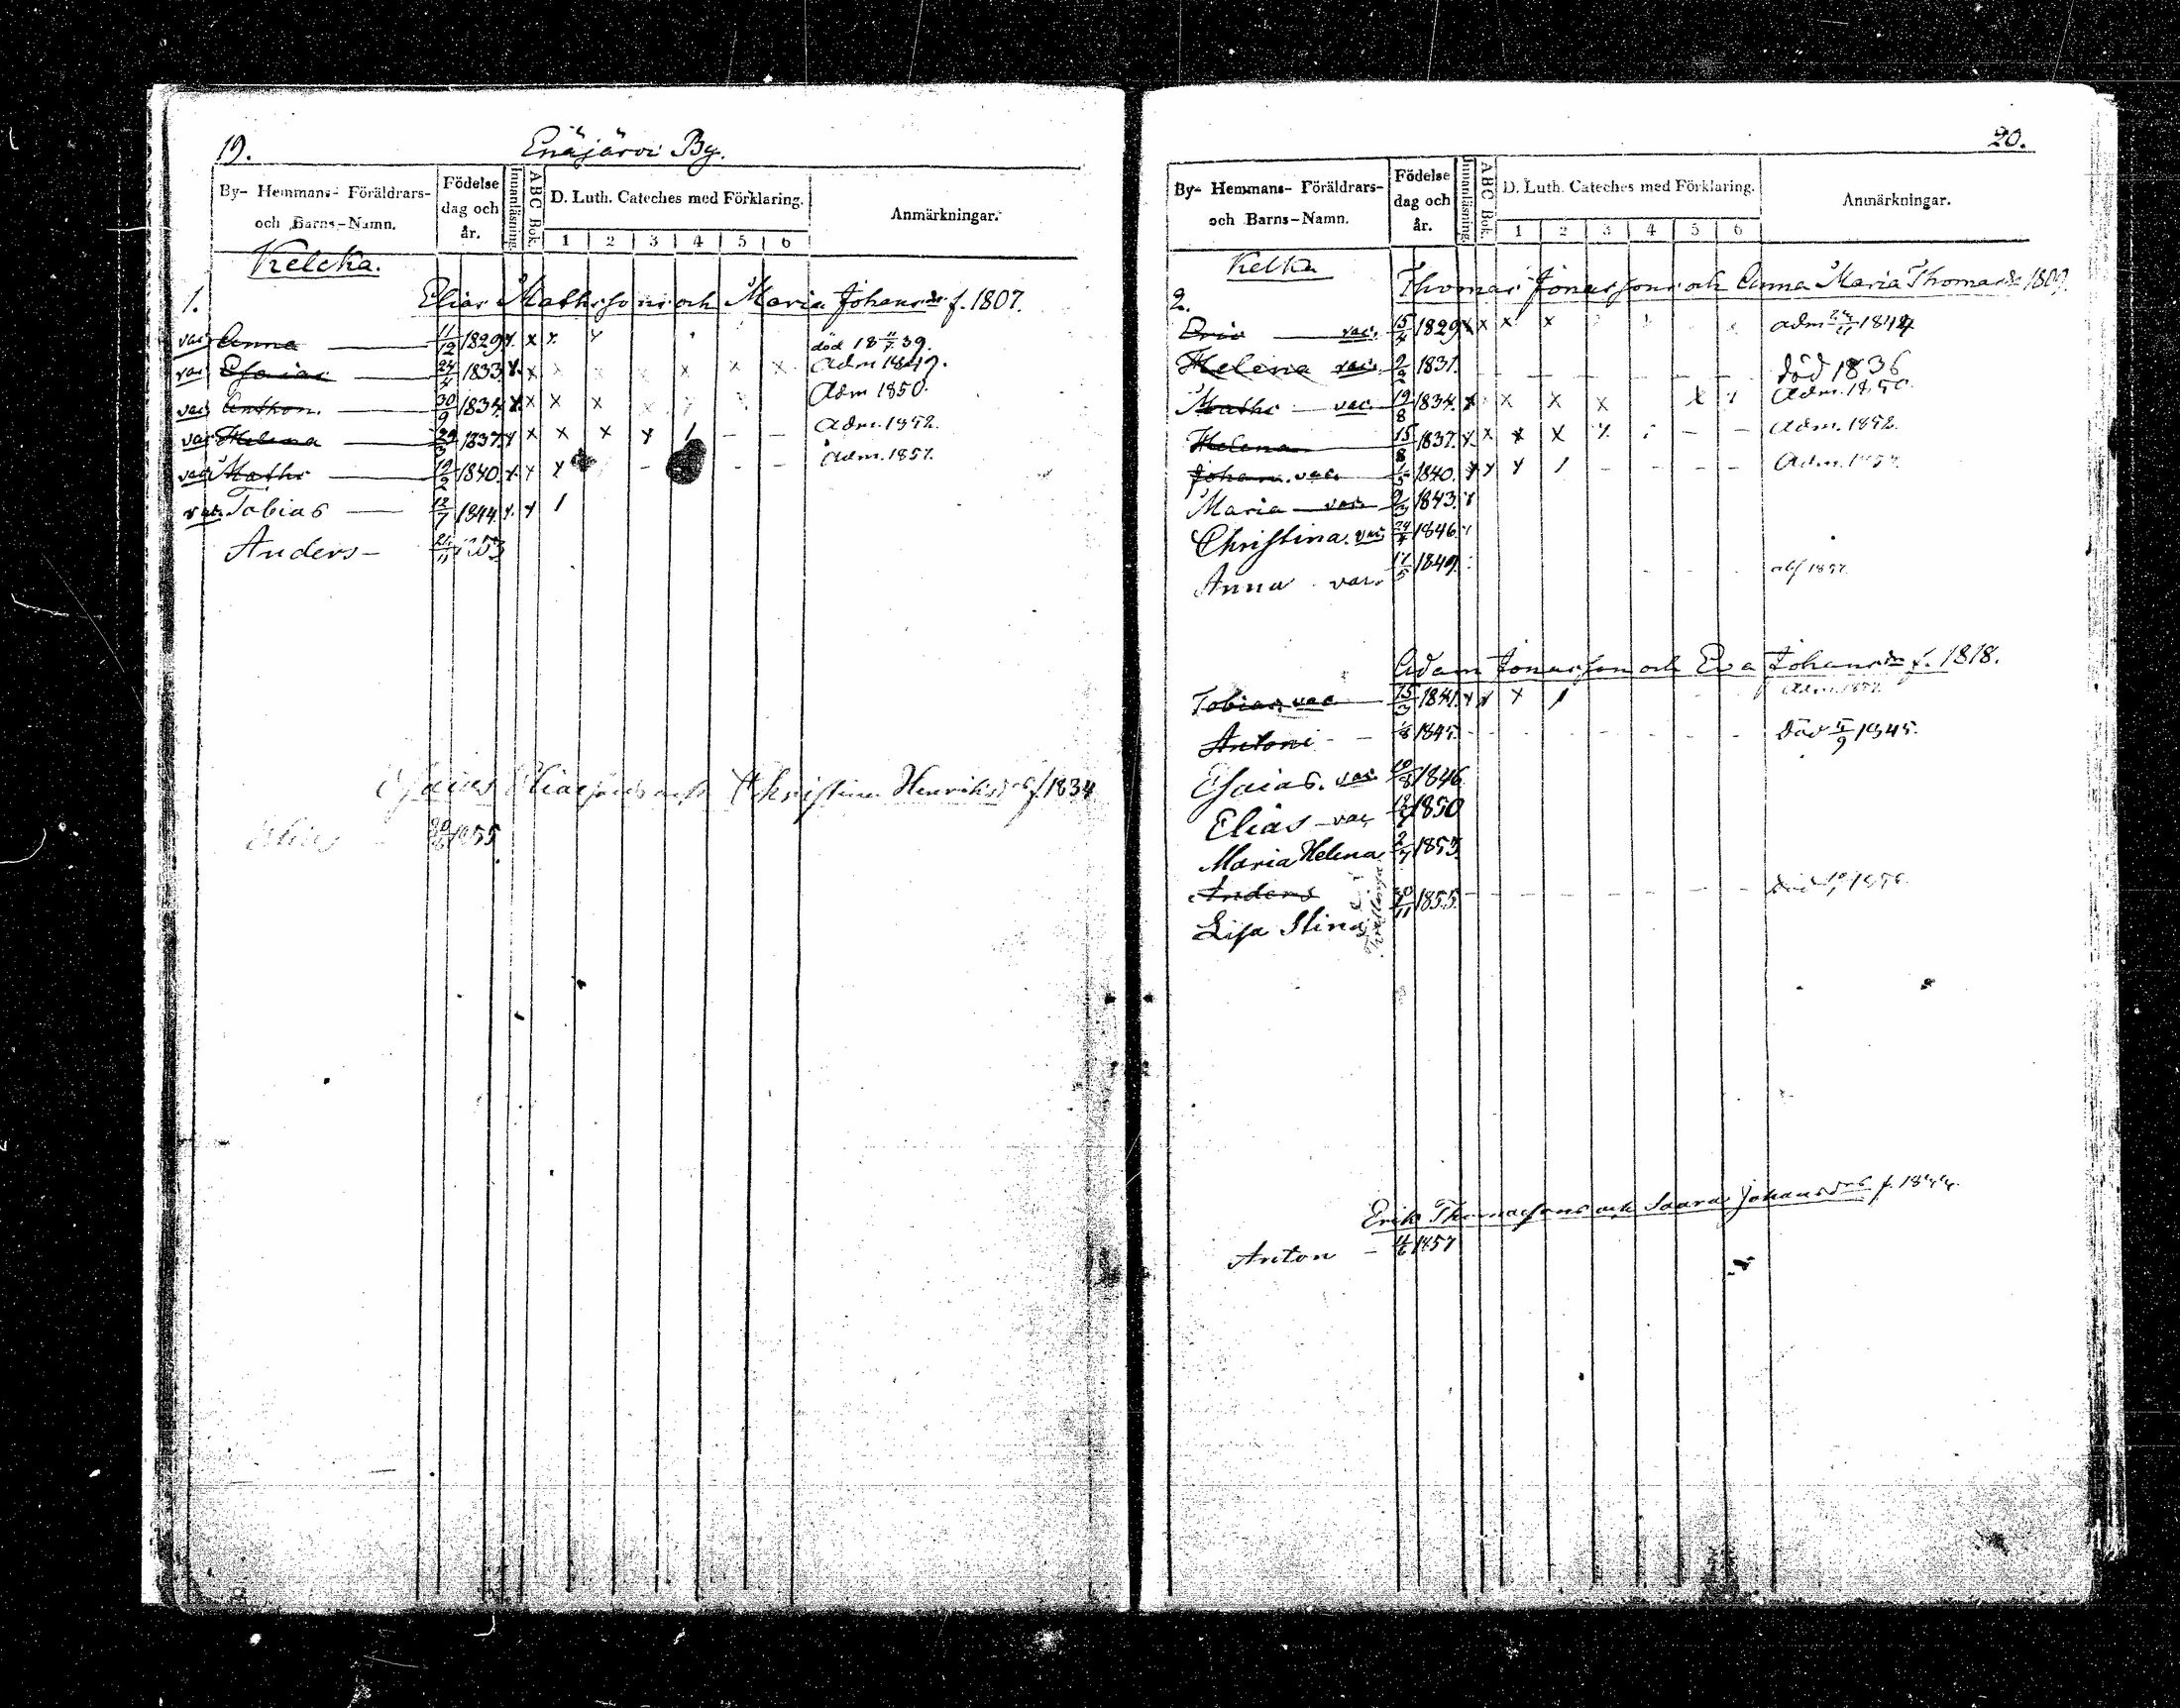 19.
Enäjärvi By.
By- Hemmans- Föräldrars- och Barns-Namn.
Födelse dag och år.
Innanläsning.
ABC Bok.
D. Luth. Cateches med Förklaring.
1 2 3 4 5 6
Anmärkningar.
Kelcka.
1. Elias Mathssons och Maria Johansdr f. 1807.
vac Anna 11/12 1829 x x x död 18 39.
vac Esaias 24/4 1833 x x x x x Adm 1849.
vac Anthon. 30/9 1834 x x x x Adm 1850
vac Helena 1837 x x x x x / - - Adm. 1852.
vac Maths 1840 x x x - - - Adm. 1857.
vac Tobias 12/7 1844 x x /
Anders - 1853
Esaias Eliassons och Christina Henriksdr f. 1834
Elias 1855
20.
By- Hemmans- Föräldrars- och Barns-Namn.
Födelse dag och år.
Innanläsning.
ABC Bok.
D. Luth. Cateches med Förklaring.
1 2 3 4 5 6
Anmärkningar.
Kelka
2. Thomas Jonassons och Anna Maria Thomasdr 1809.
Eric vac. 15/4 1829 x x x x adm 1844
Helena vac. 2/2 1831. död 1836
Maths vac. 19/8 1834. x x x x x Adm. 1850.
Helena 15/8 1837. x x x x x - - Adm. 1852.
Johan. vac. 1840. x x x / - - - - Adm.
Maria vac. 1843. x
Christina. vac. 1846
Anna vac. 17/5 1849.
Adam Jonasson och Eva Johansdr f. 1818.
Tobias vac 15/3 1841. x x x / Adm.
Antoni - - 1845. död 1845.
Esaias. vac. 1846
Elias - vac 1850
Maria Helena 1853
Anders 1855 död 1856.
Lisa Stina
Erik Thomassons och Saara Johansdr f.
Anton - 1857